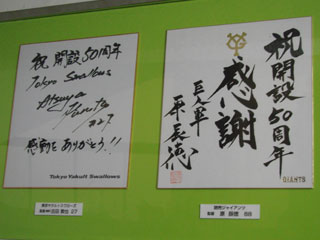 祝 開設50周年
Tokyo Swallows
Atsuya
Furuta
#27
感動をありがとう!!
Tokyo Yakult Swallows
東京ヤクルトスワローズ
古田 敦也 27
祝開設50周年
感謝
巨人軍
原辰徳
GIANTS
読売ジャイアンツ
監督 原 辰徳 88